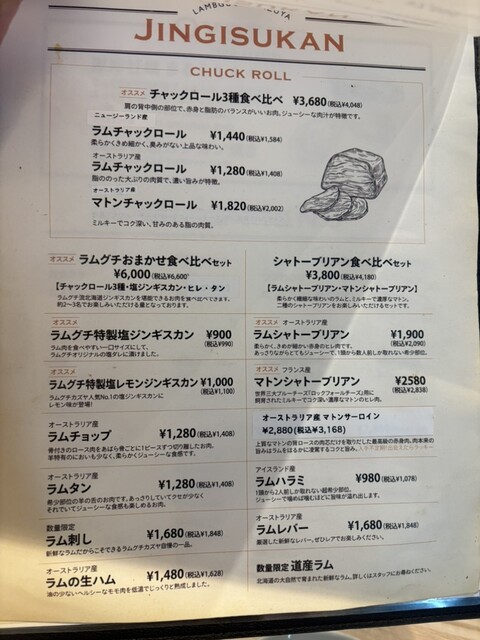 JINGISUKAN
CHUCK ROLL
オススメ チャックロール3種食べ比べ ¥3,680(税込¥4,048)
肩の背中側の部位で、赤身と脂肪のバランスがいいお肉。ジューシーな肉汁が特徴です。
ニュージーランド産
ラムチャックロール ¥1,440(税込¥1,584)
柔らかくきめ細かく、臭みがない上品な味わい。
オーストラリア産
ラムチャックロール ¥1,280(税込¥1,408)
脂ののった大ぶりの肉質で、濃い旨みが特徴。
オーストラリア産
マトンチャックロール ¥1,820(税込¥2,002)
ミルキーでコク深い、甘みのある脂の肉質。
オススメ ラムグチおまかせ食べ比べセット
¥6,000(税込¥6,600)
【チャックロール3種・塩ジンギスカン・ヒレ・タン】
ラムグチ流北海道ジンギスカンを堪能できるお肉を食べ比べできます。
約2〜3名でお楽しみいただける量となっております。
シャトーブリアン食べ比べセット
¥3,800(税込¥4,180)
【ラムシャトーブリアン・マトンシャトーブリアン】
柔らかく繊細な味わいのラムと、ミルキーで濃厚なマトン。
二種のシャトーブリアンをお楽しみいただけるセットです。
オススメ
ラムグチ特製塩ジンギスカン ¥900
(税込¥990)
ラム肉を食べやすい一口サイズにして、
ラムグチオリジナルの塩ダレに漬けました。
オススメ オーストラリア産
ラムシャトーブリアン ¥1,900
(税込¥2,090)
柔らかく、きめが細かい赤身のヒレ肉です。
あっさりながらとてもジューシーで、1頭から数人前しか取れない希少部位。
オススメ
ラムグチ特製塩レモンジンギスカン ¥1,000
(税込¥1,100)
ラムグチカズヤ人気No.1の塩ジンギスカンに
レモン味が登場!
オススメ フランス産
マトンシャトーブリアン ¥2580
(税込¥2,838)
世界三大ブルーチーズ「ロックフォールチーズ」用に
飼育されたミルキーでコク深い、濃厚なマトンのヒレ肉。
オーストラリア産 マトンサーロイン
¥2,880(税込¥3,168)
上質なマトンの背ロースの肉芯だけを取りだした最高級の赤身肉。肉本来の
旨みはラムをはるかに凌駕するコクと旨み。
オーストラリア産
ラムチョップ ¥1,280(税込¥1,408)
骨付きのロース肉をあばら骨ごとに1ピースずつ切り離したお肉。
羊特有のにおいも少なく、柔らかくジューシーな食感です。
オーストラリア産
ラムタン ¥1,280(税込¥1,408)
希少部位の羊の舌のお肉です。あっさりしていてクセが少なく
それでいてジューシーな食感も楽しめるお肉。
アイスランド産
ラムハラミ ¥980(税込¥1,078)
1頭から2人前しか取れない超希少部位。
ジューシーで噛めば噛むほどに旨味が溢れ出します。
数量限定
ラム刺し ¥1,680(税込¥1,848)
新鮮なラムだからこそできるラムグチカズヤ自慢の一品。
オーストラリア産
ラムレバー ¥1,680(税込¥1,848)
厳選した新鮮なレバー。ぜひレアでお楽しみください。
オーストラリア産
ラムの生ハム ¥1,480(税込¥1,628)
油の少ないヘルシーなモモ肉を低温でじっくりと熟成しました。
数量限定 道産ラム
北海道の大自然で育まれた新鮮なラム。詳しくはスタッフにお尋ねください。